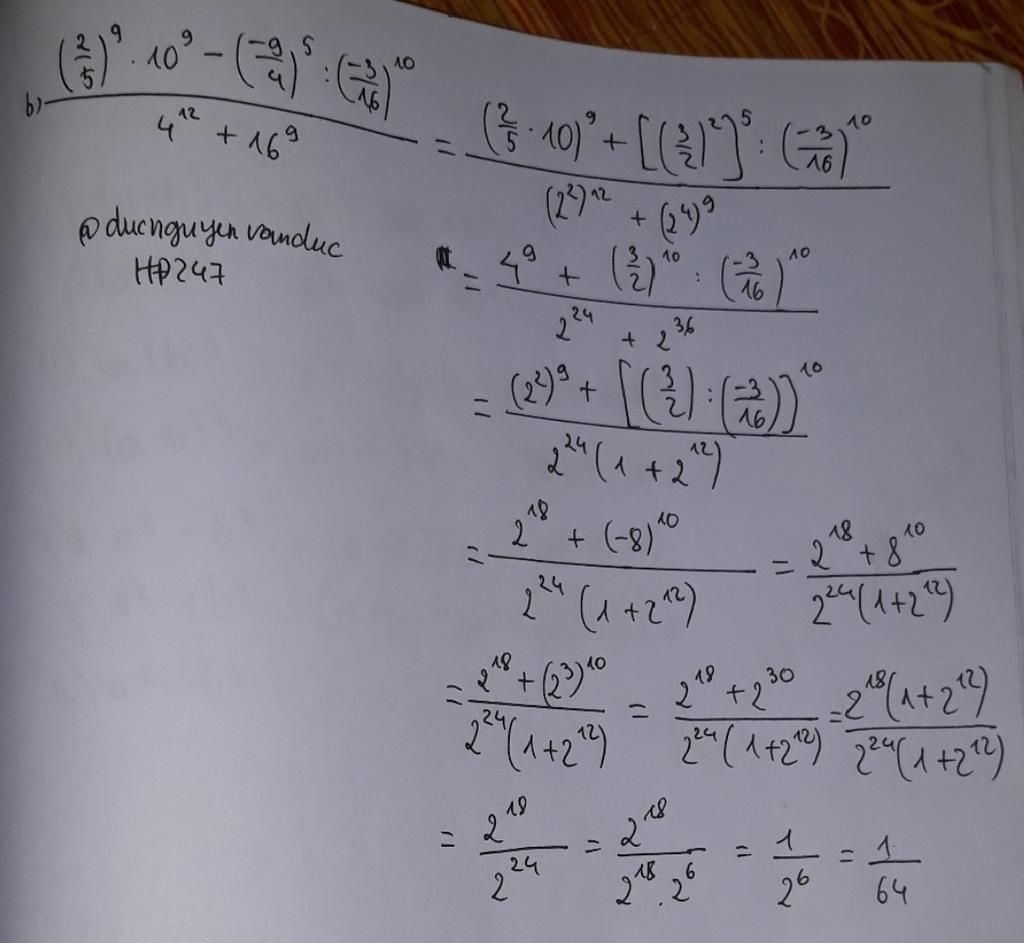 b) \frac{\left(\frac{2}{5}\right)^9 \cdot 10^9 - \left(\frac{-9}{4}\right)^5 : \left(\frac{-3}{16}\right)^{10}}{4^{12} + 16^9} = \frac{\left(\frac{2}{5} \cdot 10\right)^9 + \left[\left(\frac{3}{2}\right)^2\right]^5 : \left(\frac{-3}{16}\right)^{10}}{(2^2)^{12} + (2^4)^9}
@ducnguyenvanduc
HP247
= \frac{4^9 + \left(\frac{3}{2}\right)^{10} : \left(\frac{-3}{16}\right)^{10}}{2^{24} + 2^{36}}
= \frac{(2^2)^9 + \left[\left(\frac{3}{2}\right) : \left(\frac{-3}{16}\right)\right]^{10}}{2^{24}(1 + 2^{12})}
= \frac{2^{18} + (-8)^{10}}{2^{24}(1+2^{12})} = \frac{2^{18} + 8^{10}}{2^{24}(1+2^{12})}
= \frac{2^{18} + (2^3)^{10}}{2^{24}(1+2^{12})} = \frac{2^{18} + 2^{30}}{2^{24}(1+2^{12})} = \frac{2^{18}(1+2^{12})}{2^{24}(1+2^{12})}
= \frac{2^{18}}{2^{24}} = \frac{2^{18}}{2^{18} . 2^6} = \frac{1}{2^6} = \frac{1}{64}